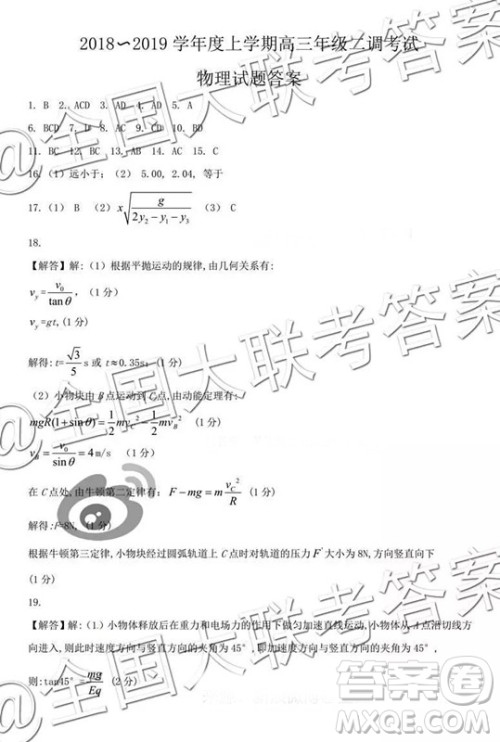 2018~2019 学年度上学期高三年级二调考试
物理试题答案
1. B 2. ACD 3. AD 4. AD 5. A
6. BCD 7. D 8. AC 9. CD 10. BD
11. BC 12. BC 13. BD 14. AC 15. AC
16. (1) 远小于; (2) 5.00, 2.04, 等于
17. (1) B (2) x√(g/(2y₂-y₁-y₃)) (3) C
18.
【解答】解: (1) 根据平抛运动的规律,由几何关系有:
v_y=v₀/tanθ, (1 分)
v_y=gt,(1 分)
解得: t=√3/5 s 或 t≈0.35s; (1 分)
(2) 小物块由 B 点运动到 C 点,由动能定理有:
mgR(1+sinθ)=1/2 mv_c²-1/2 mv_B² (1 分)
v_B=v₀/sinθ=4m/s (1 分)
在 C 点处,由牛顿第二定律有: F-mg=m v_C²/R (1 分)
解得:F=8N, (1 分)
根据牛顿第三定律,小物块经过圆弧轨道上 C 点时对轨道的压力 F' 大小为 8N,方向竖直向下
(1 分)
19.
【解答】解: (1) 小物体释放后在重力和电场力的作用下做匀加速直线运动,小物体从 A 点沿切线方
向进入,则此时速度方向与竖直方向的夹角为 45°,即加速度方向与竖直方向的夹角为 45°,
则:tan45°=mg/Eq (2 分)
@全国大联考答案
@全国大联考答案
@全国大联考答案
答案圈
MXQE.COM